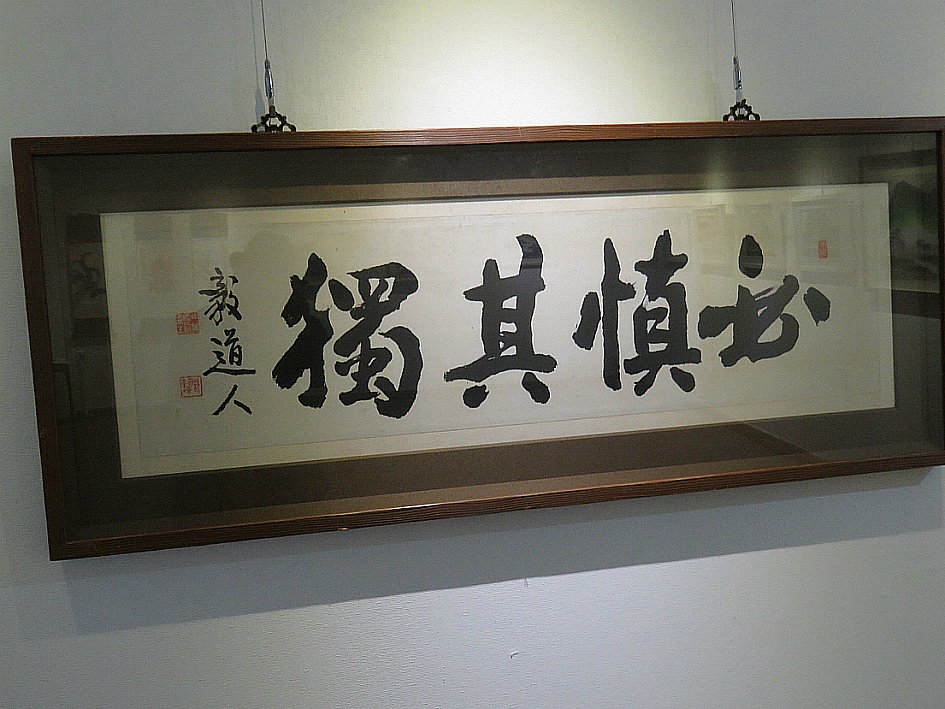 必慎其獨
毅道人